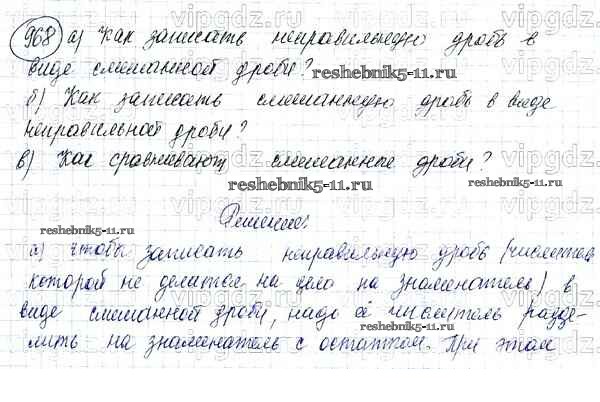 968 а) Как записать неправильную дробь в
виде смешанной дроби?
reshebnik5-11.ru
б) Как записать смешанную дробь в виде
неправильной дроби?
в) Как сравнивают смешанные дроби?
reshebnik5-11.ru
reshebnik5-11.ru
Решение:
reshebnik5-11.ru
а) чтобы записать неправильную дробь (числитель
которой не делится на цело на знаменатель) в
виде смешанной дроби, надо её числитель разде-
reshebnik5-11.ru
лить на знаменатель с остатком. При этом